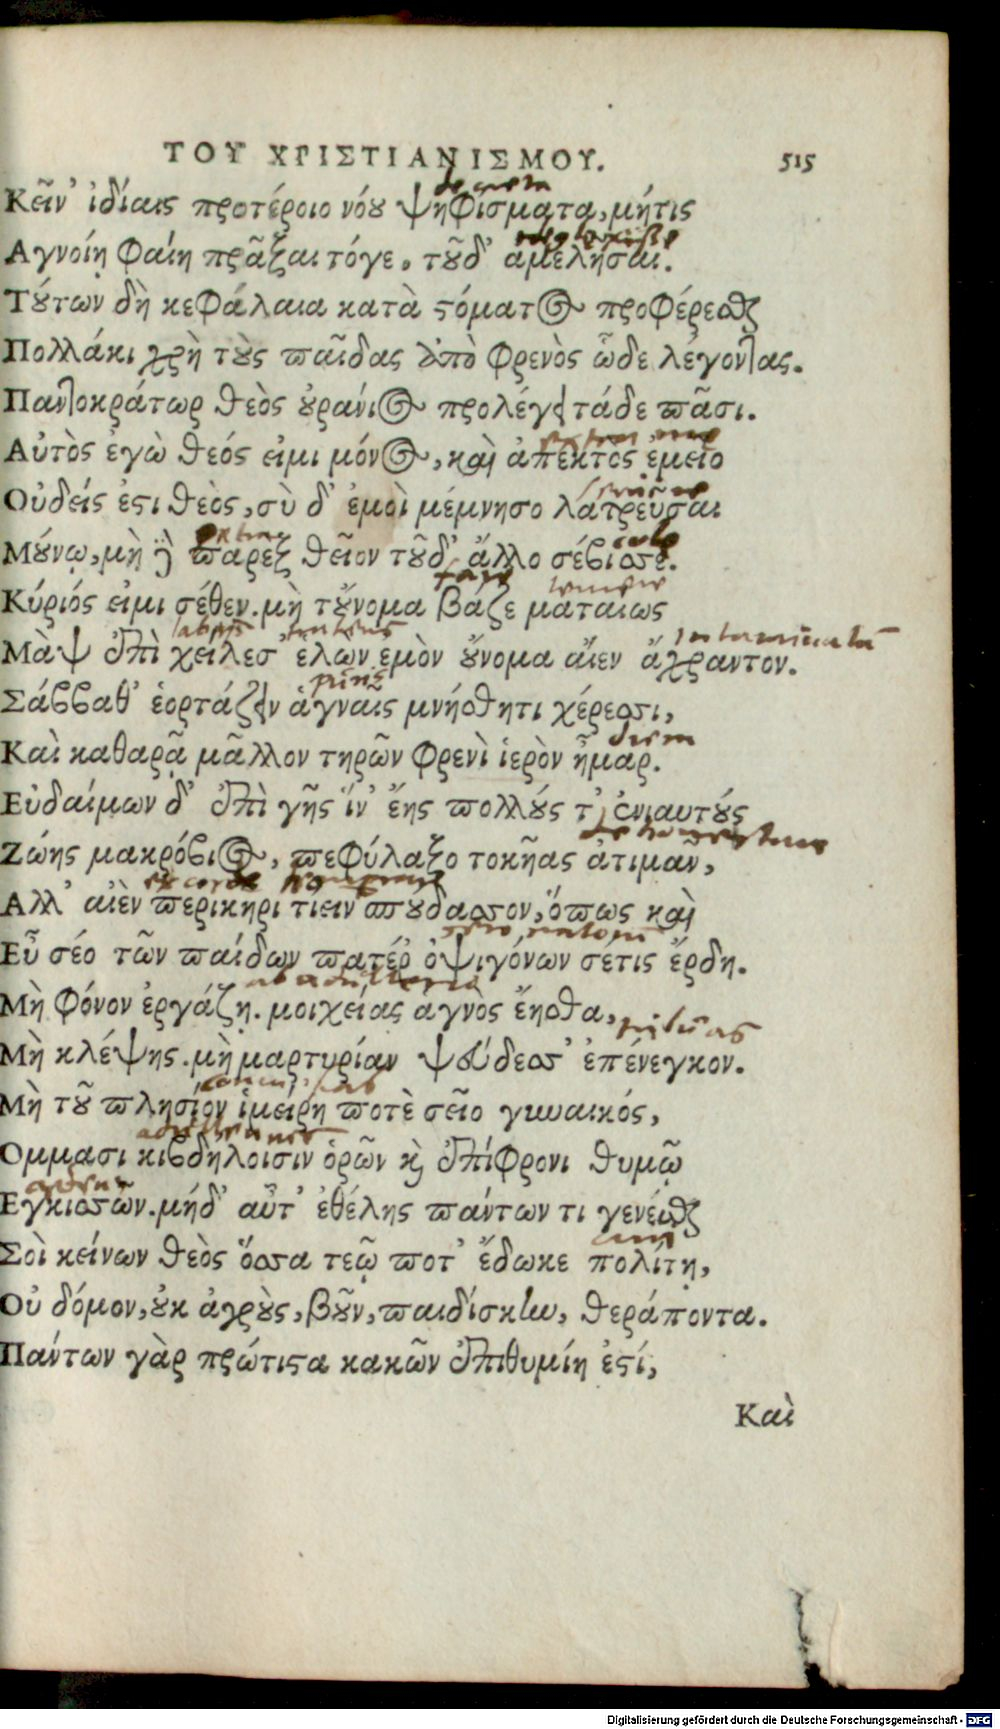 ΤΟΥ ΧΡΙΣΤΙΑΝΙΣΜΟΥ. 515
Κεῖν' ἰδίαις προτέροιο νόου ψηφίσματα, μήτις
Αγνοίη φαίη πρᾶξαι τόγε, τοῦδ' ἀμελῆσαι.
Τούτων δὴ κεφάλαια κατὰ στόματος προφέρεσθαι
Πολλάκι χρὴ τοὺς παῖδας ἀπὸ φρενὸς ὧδε λέγοντας.
Παντοκράτωρ θεὸς οὐράνιος προλέγει τάδε πᾶσι.
extra me
Αὐτὸς ἐγὼ θεός εἰμι μόνος, καὶ ἀπεκτος ἐμεῖο
Οὐδείς ἐστι θεὸς, σὺ δ' ἐμοὶ μέμνησο λατρεῦσαι
extra
Μούνῳ, μὴ δὲ πάρεξ θεῖον τοῦδ' ἄλλο σέβισσε.
Κύριός εἰμι σέθεν. μὴ τοὔνομα βάζε ματαίως
intaminatū
Μὰψ ἐπὶ χείλεσ' ἑλων ἐμὸν οὔνομα αἴεν ἄχραντον.
Σάββαθ' ἑορτάζειν ἁγναῖς μνήσθητι χέρεσσι,
diem
Καὶ καθαρᾷ μᾶλλον τηρῶν φρενὶ ἱερὸν ἦμαρ.
Εὐδαίμων δ' ἐπὶ γῆς ἵν' ἔῃς πολλούς τ' ἐνιαυτούς
Ζώης μακρόβιος, πεφύλαξο τοκῆας ἀτιμᾶν,
ex corde
Αλλ' αἰὲν περικηρι τιειν σπούδασσον, ὅπως καὶ
Εὖ σέο τῶν παίδων πατέρ' ὀψιγόνων σέτις ἔρδῃ.
Μὴ φόνον ἐργάζῃ. μοιχείας ἁγνὸς ἔησθα,
Μὴ κλέψῃς. μὴ μαρτυρίαν ψεύδεσσ' ἐπένεγκον.
Μὴ τοῦ πλησίον ἱμείρῃ ποτὲ σεῖο γυναικός,
Ομμασι κιβδηλοισιν ὁρῶν καὶ ἐπίφρονι θυμῷ
Εγκισσῶν. μήδ' αὖτ' ἐθέλῃς πάντων τι γενέσθαι
Σοὶ κείνων θεὸς ὅσσα τεῷ ποτ' ἔδωκε πολίτῃ,
Οὐ δόμον, οὐκ ἀγροὺς, βοῦν, παιδίσκην, θεράποντα.
Πάντων γὰρ πρώτιστα κακῶν ἐπιθυμίη ἐστί,
Καὶ
Digitalisierung gefördert durch die Deutsche Forschungsgemeinschaft - DFG